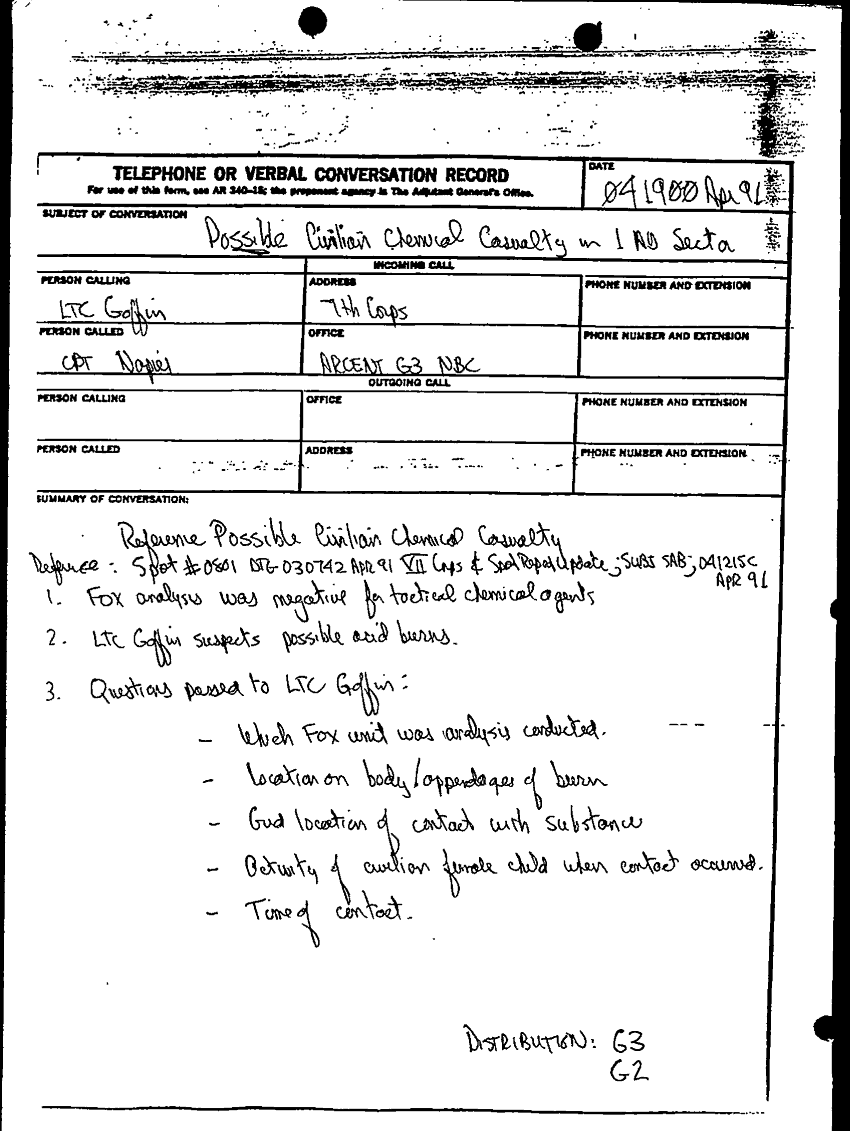 TELEPHONE OR VERBAL CONVERSATION RECORD
For use of this form, see AR 340-15; the proponent agency is The Adjutant General's Office.
DATE
041900 Apr 91
SUBJECT OF CONVERSATION
Possible Civilian Chemical Casualty in 1 AD Sector
INCOMING CALL
PERSON CALLING
LTC Goffin
ADDRESS
7th Corps
PHONE NUMBER AND EXTENSION
PERSON CALLED
CPT Napier
OFFICE
ARCENT G3 NBC
PHONE NUMBER AND EXTENSION
OUTGOING CALL
PERSON CALLING
OFFICE
PHONE NUMBER AND EXTENSION
PERSON CALLED
ADDRESS
PHONE NUMBER AND EXTENSION
SUMMARY OF CONVERSATION:
Reference Possible Civilian Chemical Casualty
Reference : Spot #0801 DTG 030742 APR 91 VII Corps & Spot Report Update ; SUBS SAB; 041215C
APR 91
1. Fox analysis was negative for tactical chemical agents
2. LTC Goffin suspects possible acid burns.
3. Questions passed to LTC Goffin :
- Which Fox unit was analysis conducted.
- Location on body/appendages of burn
- Grid location of contact with substance
- Activity of civilian female child when contact occurred.
- Time of contact.
DISTRIBUTION: G3
G2